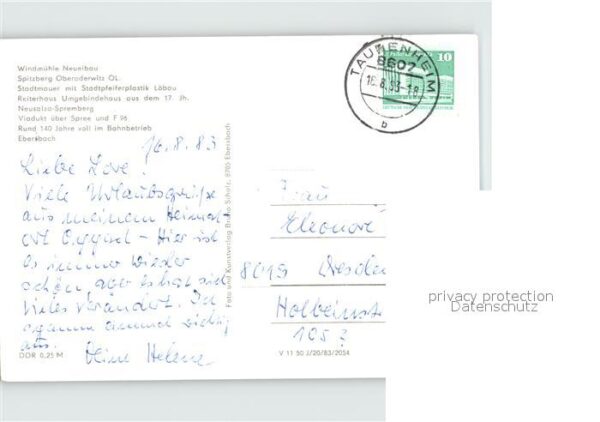 Windmühle Neueibau
Spitzberg Oberoderwitz OL.
Stadtmauer mit Stadtpfeiferplastik Löbau
Reiterhaus Umgebindehaus aus dem 17. Jh.
Neusalza-Spremberg
Viadukt über Spree und F 96
Rund 140 Jahre voll im Bahnbetrieb
Ebersbach
TAUBENHEIM
8607
16.8.83-18
b
10
16.8.83
Liebe Lore!
Viele Urlaubsgrüße
aus meinem Heimat-
ort Oppach - Hier ist
es immer wieder
schön, aber es hat sich
vieles verändert.
aus.
Deine Helene
DDR 0,25 M
Foto und Kunstverlag Bruno Scholz, 8705 Ebersbach
Frau
Eleonore
8019 Dresden
Holbeinstr
105
V 11 50 J/20/83/2054
privacy protection
Datenschutz